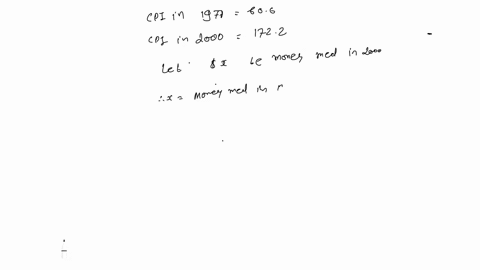 CPI in 1977 = 60.6
CPI in 2000 = 172.2
Let $x be money med in 2000
∴ x = Money med in